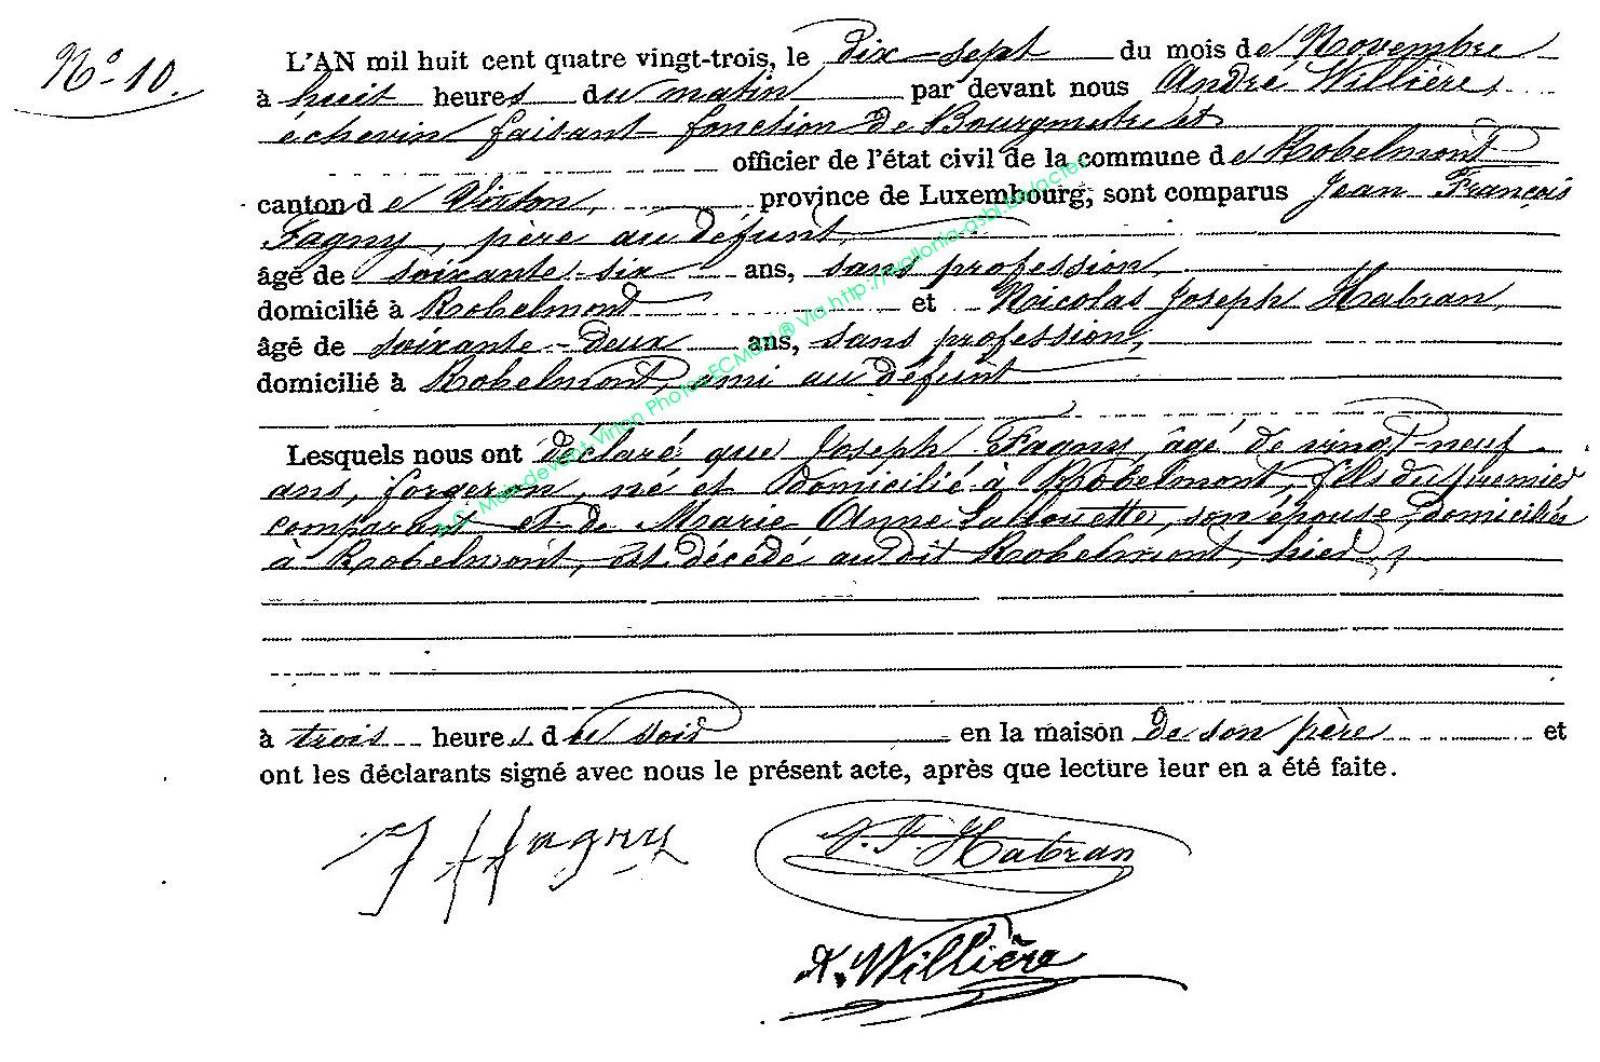 N° 10.
L'AN mil huit cent quatre vingt-trois, le Dix-sept du mois de Novembre
à huit heures du matin par devant nous André Willière,
échevin faisant fonction de Bourgmestre et
officier de l'état civil de la commune de Robelmont
canton de Virton, province de Luxembourg, sont comparus Jean François
Fagny, père au défunt,
âgé de soixante-six ans, sans profession,
domicilié à Robelmont et Nicolas Joseph Habran,
âgé de soixante-deux ans, sans profession,
domicilié à Robelmont, ami au défunt
Lesquels nous ont déclaré que Joseph Fagny, âgé de vingt-neuf
ans, forgeron, né et domicilié à Robelmont, fils du premier
comparant et de Marie Anne son épouse, domiciliés
à Robelmont, est décédé au dit Robelmont, hier,
à trois heures du soir en la maison de son père et
ont les déclarants signé avec nous le présent acte, après que lecture leur en a été faite.
J F Fagny
Habran
A. Willière